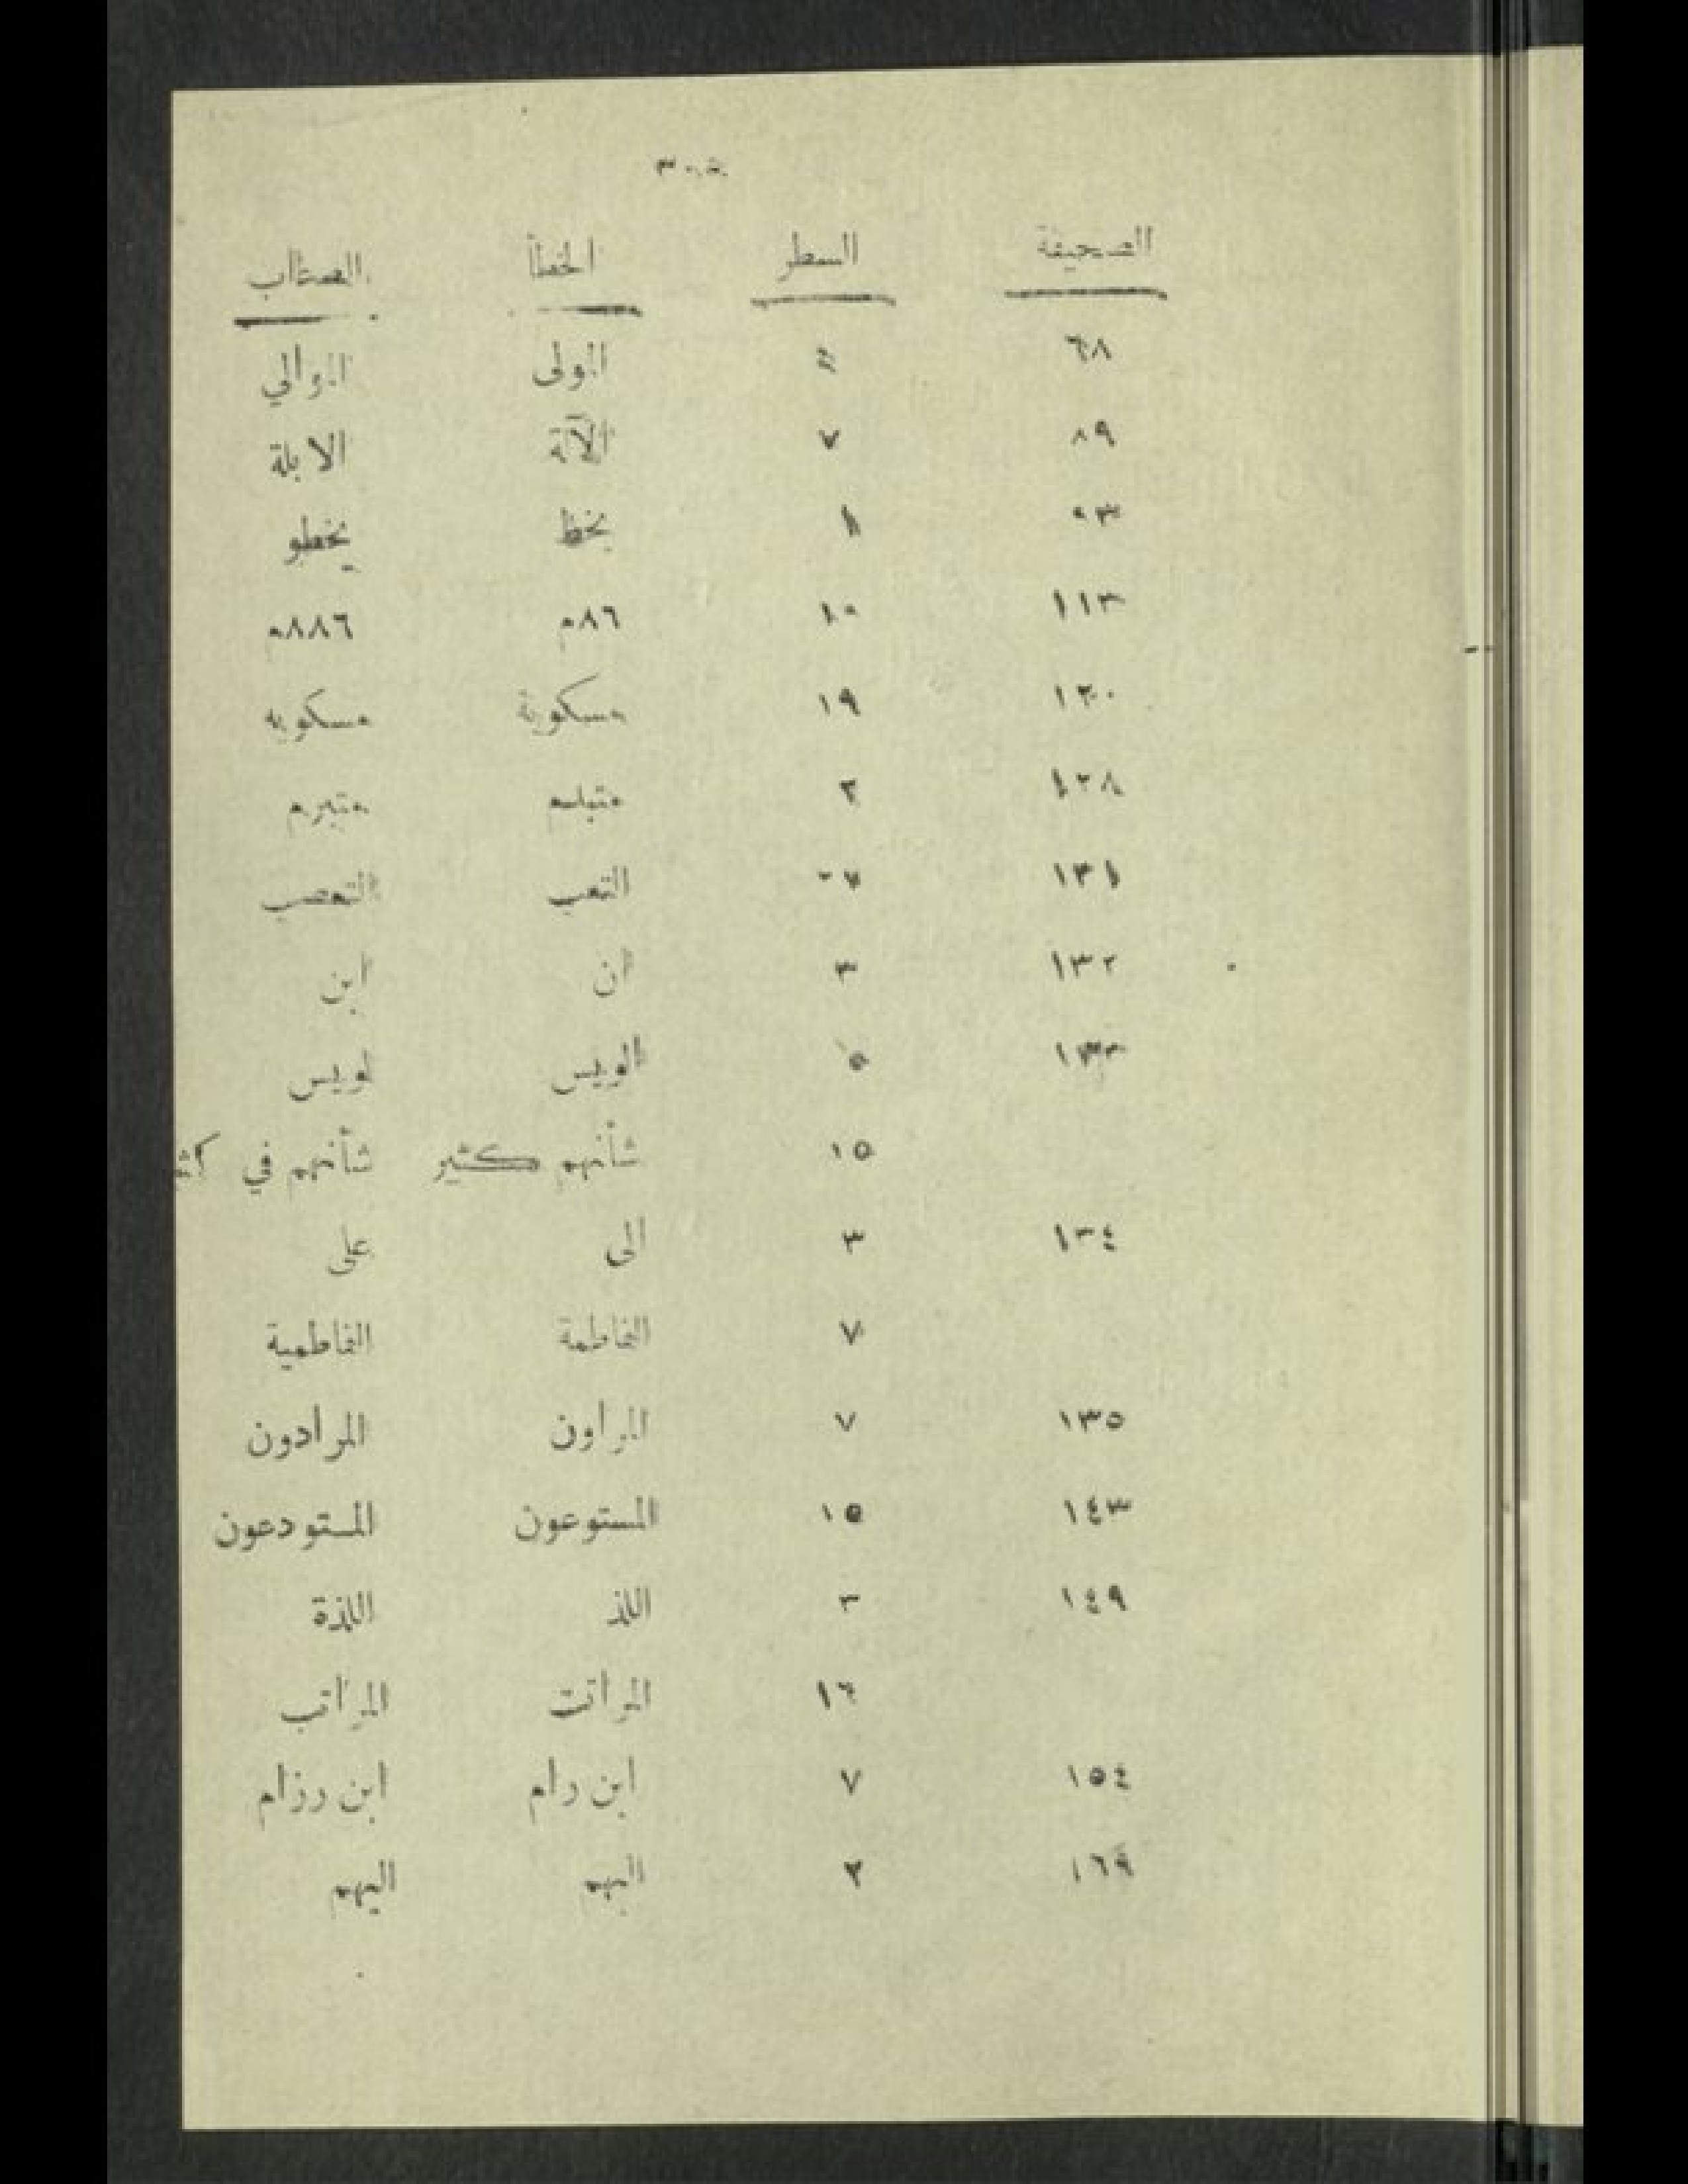 الصحيفة السطر الخطأ الصواب
٦٨ الموالي
٨٩ ٧ الابلة
٩٣ ٨ يخط يخطو
١١٣ ١٠ ٨٦م ٨٨٦م
١٢٠ ١٩ مسكوية مسكويه
١٢٨ ٢ متبلم متبرم
١٣١ التعب التعصب
١٣٢ ٣ ان ابن
١٣٣ ٥ الويس لويس
١٥ شأنهم كثير شأنهم في
١٣٤ ٣ الى على
٧ الفاطمة الفاطمية
١٣٥ ٧ المراون المرادون
١٤٣ ١٥ المستوعون المستودعون
١٤٩ ٣ اللذ اللذة
١٦ المراتت المراتب
١٥٤ ٧ ابن رام ابن رزام
١٦٩ ٢ البهم اليهم